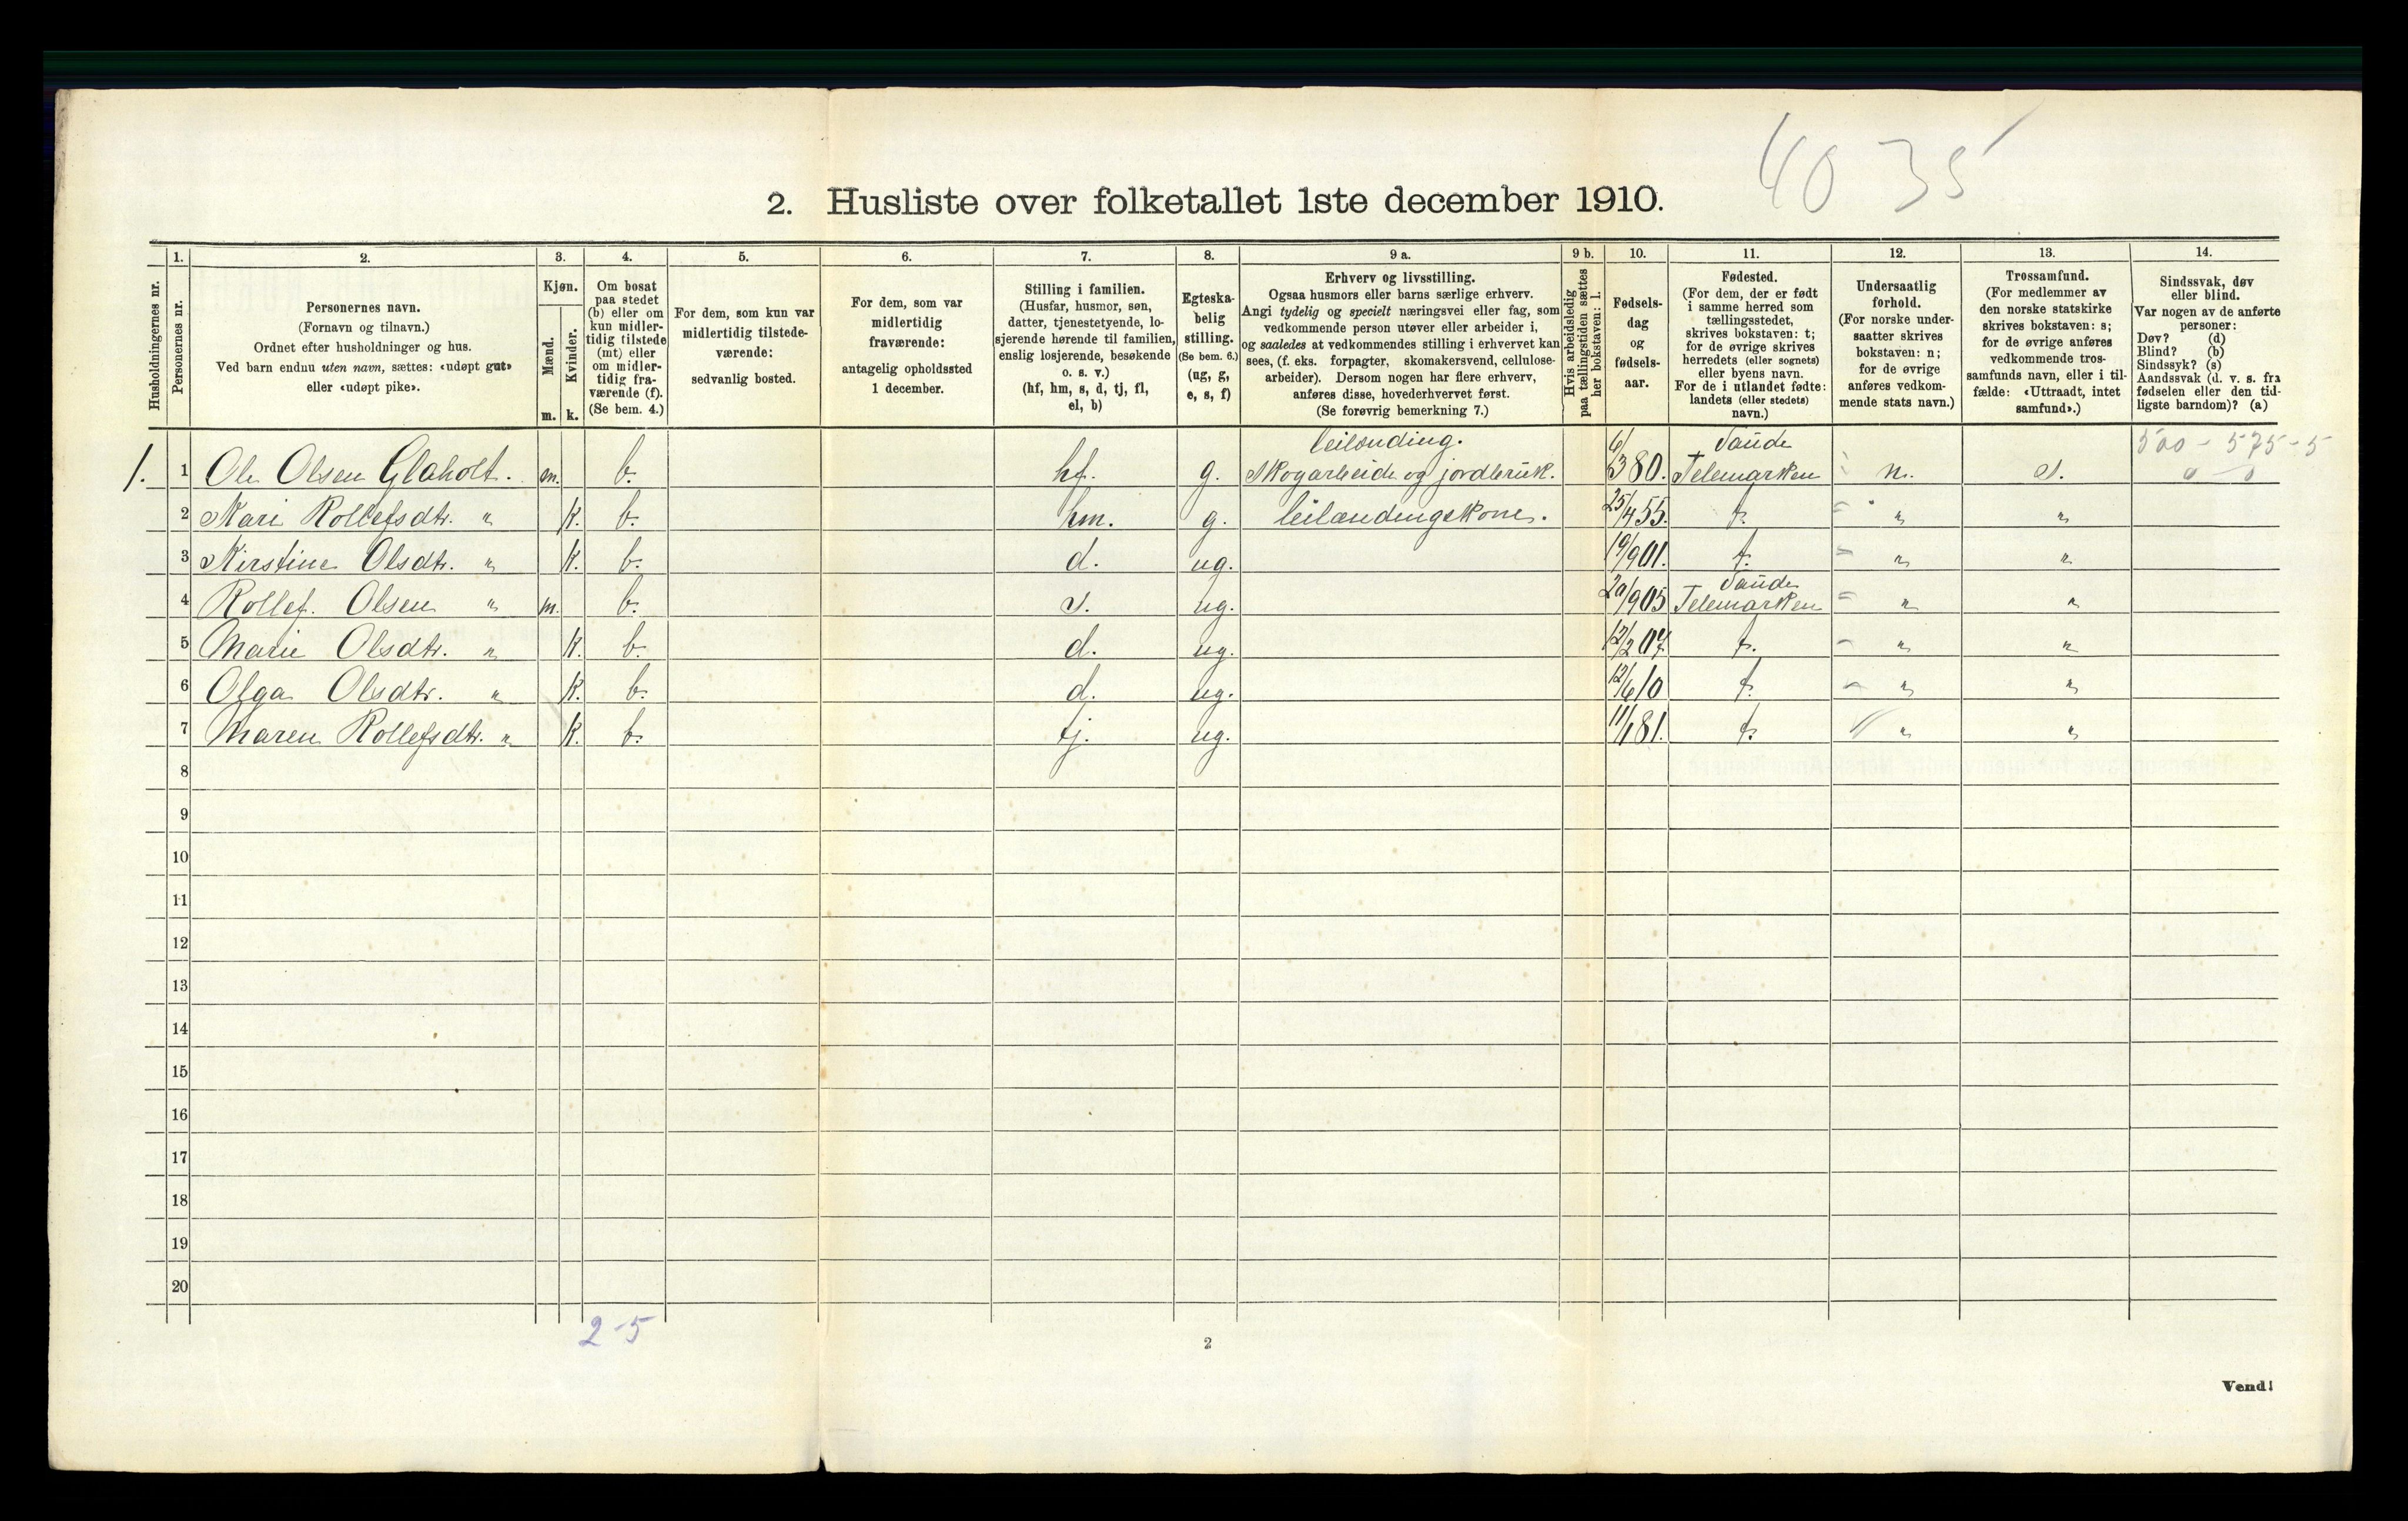 40 35
2. Husliste over folketallet 1ste december 1910.
Husholdningernes nr.
1.
Personernes nr.
2.
Personernes navn.
(Fornavn og tilnavn.)
Ordnet efter husholdninger og hus.
Ved barn endnu uten navn, sættes: «udøpt gut»
eller «udøpt pike».
3.
Kjøn.
Mænd.
m.
Kvinder.
k.
4.
Om bosat
paa stedet
(b) eller om
kun midler-
tidig tilstede
(mt) eller
om midler-
tidig fra-
værende (f).
(Se bem. 4.)
5.
For dem, som kun var
midlertidig tilstede-
værende:
sedvanlig bosted.
6.
For dem, som var
midlertidig
fraværende:
antagelig opholdssted
1 december.
7.
Stilling i familien.
(Husfar, husmor, søn,
datter, tjenestetyende, lo-
sjerende hørende til familien,
enslig losjerende, besøkende
o. s. v.)
(hf, hm, s, d, tj, fl,
el, b)
8.
Egteska-
belig
stilling.
(Se bem. 6.)
(ug, g,
e, s, f)
9 a.
Erhverv og livsstilling.
Ogsaa husmors eller barns særlige erhverv.
Angi tydelig og specielt næringsvei eller fag, som
vedkommende person utøver eller arbeider i,
og saaledes at vedkommendes stilling i erhvervet kan
sees, (f. eks. forpagter, skomakersvend, cellulose-
arbeider). Dersom nogen har flere erhverv,
anføres disse, hovederhvervet først.
(Se forøvrig bemerkning 7.)
9 b.
Hvis arbeidsledig
paa tællingstiden sættes
her bokstaven: l.
10.
Fødsels-
dag
og
fødsels-
aar.
11.
Fødested.
(For dem, der er født
i samme herred som
tællingsstedet,
skrives bokstaven: t;
for de øvrige skrives
herredets (eller sognets)
eller byens navn.
For de i utlandet fødte:
landets (eller stedets)
navn.)
12.
Undersaatlig
forhold.
(For norske under-
saatter skrives
bokstaven: n;
for de øvrige
anføres vedkom-
mende stats navn.)
13.
Trossamfund.
(For medlemmer av
den norske statskirke
skrives bokstaven: s;
for de øvrige anføres
vedkommende tros-
samfunds navn, eller i til-
fælde: «Uttraadt, intet
samfund».)
14.
Sindssvak, døv
eller blind.
Var nogen av de anførte
personer:
Døv? (d)
Blind? (b)
Sindssyk? (s)
Aandssvak (d. v. s. fra
fødselen eller den tid-
ligste barndom)? (a)
leilænding. Saude 500 - 575 - 5
1. 1 Ole Olsen Glaholt. m. b. hf. g. Skogarbeide og jordbruk. 6/3 80. Telemarken n. s. 0 0
2 Kari Rollefsdtr. " k. b. hm. g. leilændingskone. 25/4 55. t. " "
3 Kirstine Olsdtr. " k. b. d. ug. 19/9 01. t. " "
Saude
4 Rollef. Olsen " m. b. s. ug. Telemarken " "
5 Marie Olsdtr. " k. b. d. ug. 12/2 07. t. " "
6 Olga Olsdtr. " k. b. d. ug. 12/6 10 t. " "
7 Maren Rollefsdtr. " k. b. tj. ug. 11/1 81. t. " "
8
9
10
11
12
13
14
15
16
17
18
19
20
2-5
2
Vend!